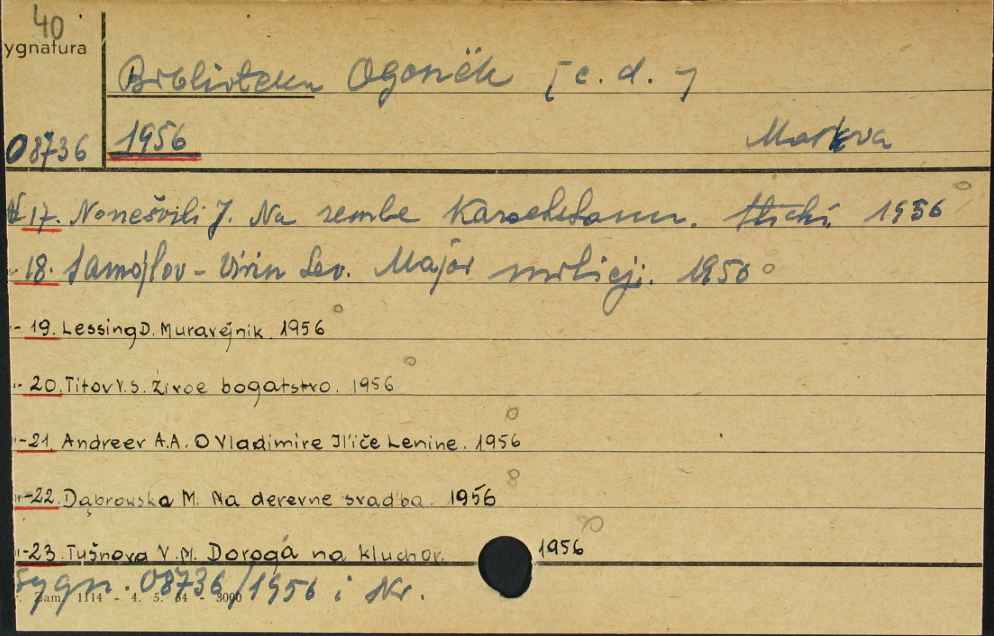 40
ygnatura
Biblioteka Ogonёk [c. d.]
08736 1956 Moskva
17. Nonešvili J. Na zemle Kazachstana. Stichi 1956
18. Samojlov-Virin Lev. Major milicji. 1956
-19. Lessing D. Muravejnik. 1956
20. Titov V.S. Živoe bogatstvo. 1956
-21. Andreev A.A. O Vladimire Il'iče Lenine. 1956
-22. Dąbrowska M. Na derevne svad'ba. 1956
-23. Tušnova V.M. Doroga na Kluchor. 1956
Sygn. 08736/1956 i Nr.
Zam. 1114 - 4. 5. 64 - 3000